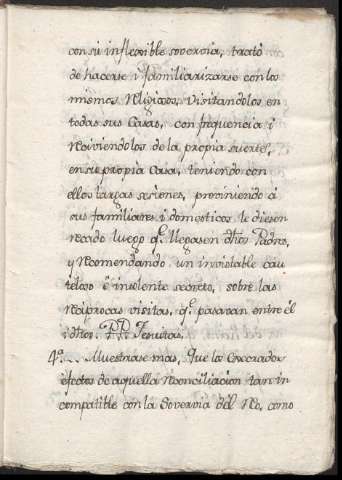 con su inflexible sovervia, trató
de hacerse i familiarizarse con los
mismos Religiosos, visitandolos en
todas sus Casas, con frequencia i
reciviendolos de la propia suerte,
en su propia Casa, teniendo con
ellos largas sesiones, previniendo á
sus familiares i domesticos le diesen
recado luego q.e llegasen dhos Padres,
y recomendando un inviolable cau
teloso é insolente secreto, sobre las
reciprocas visitas, q.e pasavan entre él
i dhos. P.P. Jesuitas.
4.º... Muestrase mas, que los
efectos de aquella reconciliacion tan in
compatible con la sovervia del Reo, como